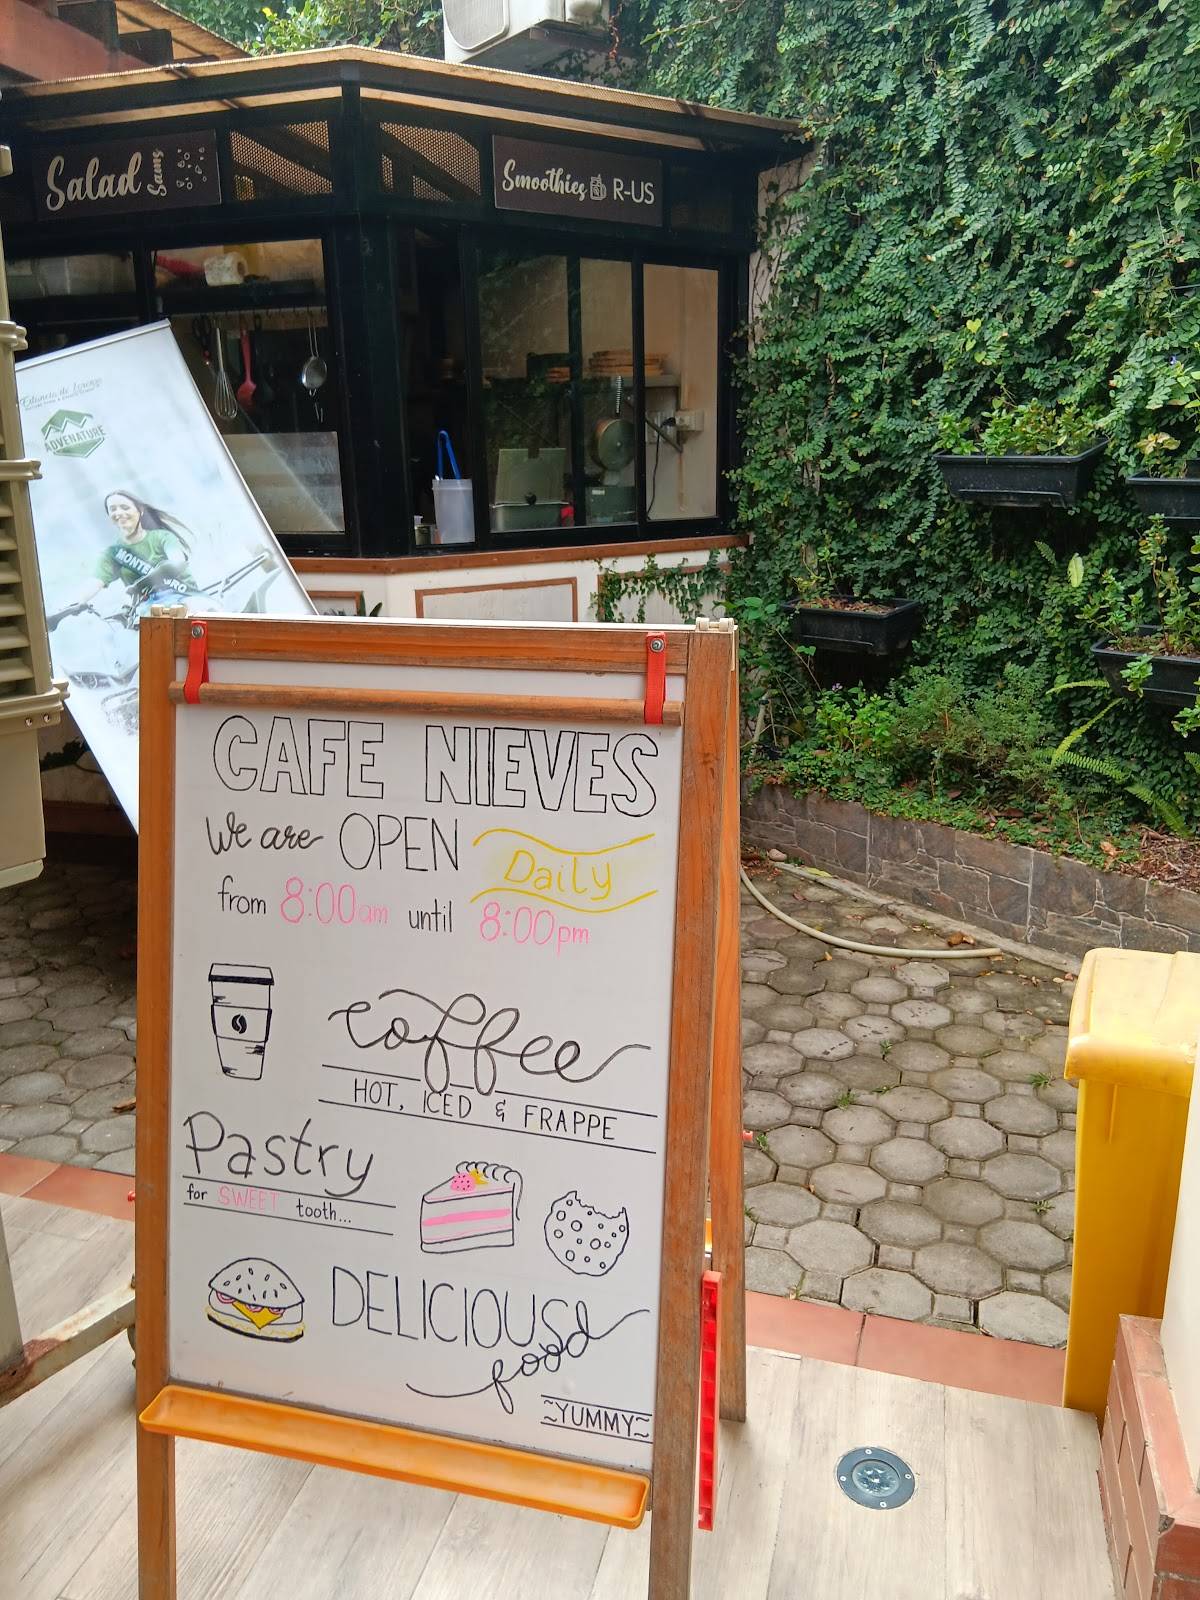 Salad
Smoothies R-US
ADVENATURE
CAFE NIEVES
We are OPEN Daily
from 8:00am until 8:00pm
coffee
HOT, ICED & FRAPPE
Pastry
for SWEET tooth...
DELICIOUS
food
~YUMMY~